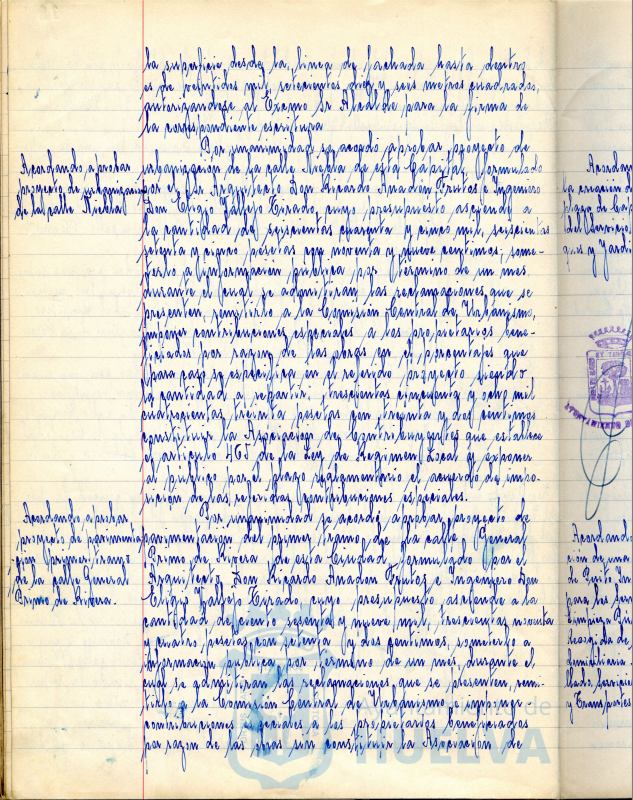 la superficie desde la linea de fachada hasta dentro
es de veintidos mil setecientos diez y seis metros cuadrados,
autorizandose al Excmo Sr Alcalde para la firma de
la correspondiente escritura
Acordando aprobar
proyecto de urbanizacion
de la calle Niebla
Por unanimidad se acordó aprobar proyecto de
urbanizacion de la calle Niebla de esta Capital, formulado
por el Sr Arquitecto Don Ricardo Anadon Frutos e Ingeniero
Don Eligio Vallejo Tirado, cuyo presupuesto asciende a
la cantidad de seiscientas cuarenta y cinco mil, seiscientas
setenta y cinco pesetas con noventa y nueve centimos, some-
terlo a informacion publica por termino de un mes,
durante el cual se admitiran las reclamaciones que se
presenten, remitirlo a la Comision Central de Urbanismo,
imponer contribuciones especiales a los propietarios bene-
ficiados por razon de las obras en el porcentales que
para caso se especifica en el referido proyecto siendo
la cantidad a repartir, trescientas cincuenta y ocho mil
cuatrocientas treinta pesetas con treinta y dos centimos
constituir la Asociacion de Contribuyentes que establece
el articulo 465 de la Ley de Regimen Local y exponer
al publico por el plazo reglamentario el acuerdo de impo-
sicion de las referidas contribuciones especiales.
Acordando aprobar
proyecto de pavimenta-
cion primer tramo
de la calle General
Primo de Rivera.
Por unanimidad se acordó aprobar proyecto de
pavimentacion del primer tramo de la calle General
Primo de Rivera de esta Ciudad formulado por el
Arquitecto Don Ricardo Anadon Frutos e Ingeniero Don
Eligio Vallejo Tirado cuyo presupuesto asciende a la
cantidad de ciento sesenta y nueve mil, trescientas noventa
y cuatro pesetas con setenta y dos centimos, someterlo a
informacion publica, por termino de un mes, durante el
cual se admitiran las reclamaciones que se presenten, remi-
tirlo a la Comision Central de Urbanismo e imponer
contribuciones especiales a los propietarios beneficiados
por razon de las obras sin constituir la Asociacion de
Acordan
la creacion de
plaza de Cap
del Servicio
ques y Jardi
Acordando
de Punto
para los
Limpieza
Recogida de
domiciliaria
y Transportes
de
HUELVA